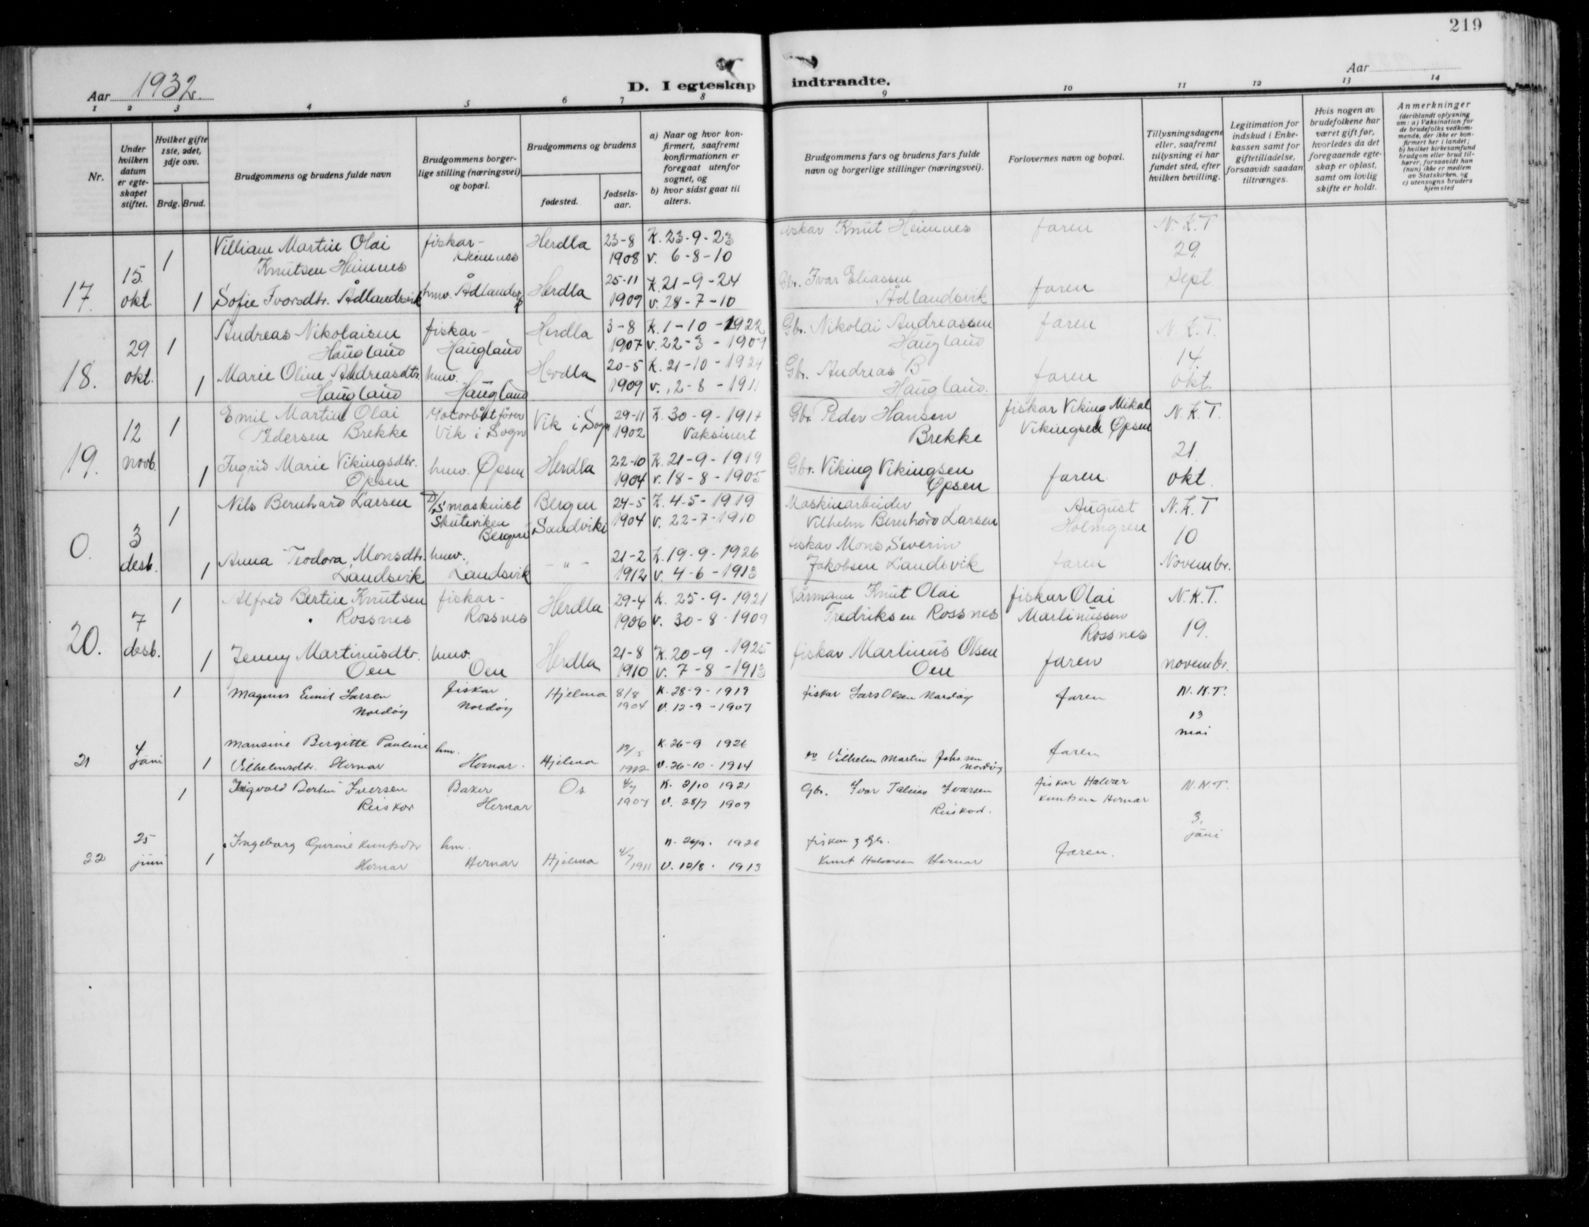 219
Aar 1932.
D. I egteskap indtraadte.
Aar
1 2 3 4 5 6 7 8 9 10 11 12 13 14
Nr.
Under hvilken datum er egteskapet stiftet.
Hvilket gifte 1ste, 2det, 3dje osv.
Brdg. Brud.
Brudgommens og brudens fulde navn
Brudgommens borgerlige stilling (næringsvei) og bopæl.
Brudgommens og brudens
fødested.
fødselsaar.
a) Naar og hvor konfirmert, saafremt konfirmationen er foregaat utenfor sognet, og
b) hvor sidst gaat til alters.
Brudgommens fars og brudens fars fulde navn og borgerlige stillinger (næringsvei).
Forlovernes navn og bopæl.
Tillysningsdagene eller, saafremt tillysning ei har fundet sted, efter hvilken bevilling.
Legitimation for indskud i Enkekassen samt for giftetilladelse, forsaavidt saadan tiltrænges.
Hvis nogen av brudefolkene har været gift før, hvorledes da det foregaaende egteskap er opløst, samt om lovlig skifte er holdt.
Anmerkninger
(deriblandt oplysning om: a) Vaksination for de brudefolks vedkommende, der ikke er konfirmert her i landet; b) hvilket kirkesamfund brudgom eller brud tilhører, forsaavidt han (hun) ikke er medlem av Statskirken, og c) utensogns bruders hjemsted
17. 15 okt. 1 Villiam Martin Olai Knutsen Heimnes fiskar- Heimnes Herdla 23-8 1908 K. 23-9-23 v. 6-8-10 fiskar Knut Heimnes faren N.K.T 29 sept.
1 Sofie Ivarsdtr. Ådlandsvik huv. Ådlandsv. Herdla 25-11 1909 K. 21-9-24 v. 28-7-10 Gbr. Ivar Eliassen Ådlandsvik faren
18. 29 okt. 1 Andreas Nikolaisen Haugland fiskar- Haugland Herdla 3-8 1907 K. 1-10-1922 v. 22-3-1909 Gbr. Nikolai Andreassen Haugland faren N.K.T. 14. okt.
1 Marie Oline Andreasdtr. Haugland huv. Haugland Herdla 20-5 1909 K. 21-10-1924 v. 2-8-1911 Gbr. Andreas B Haugland. faren
19. 12 novb. 1 Emil Martin Olai Pedersen Brekke Motorbåtfører Vik i Sogn Vik i Sogn 29-11 1902 K. 30-9-1917 Vaksinert Gbr. Peder Hansen Brekke fiskar Viking Mikal Vikingsen Opsen N.K.T. 21. okt.
1 Ingrid Marie Vikingsdtr. Opsen huv. Opsen Herdla 22-10 1904 K. 21-9-1919 v. 18-8-1905 Gbr. Viking Vikingsen Opsen faren
0. 3 desb. 1 Nils Bernhard Larsen D/S maskinist Skuteviken Bergen Bergen Sandvik 24-5 1904 K. 4-5-1919 v. 22-7-1910 Maskinarbeider Vilhelm Bernhard Larsen August Holmgren N.K.T 10 Novembr.
1 Anna Teodora Monsdtr. Landsvik huv. Landsvik - " - 21-2 1912 K. 19-9-1926 v. 4-6-1913 fiskar Mons Severin Jakobsen Landsvik faren
20. 7 desb. 1 Alfred Bertin Knutsen Rossnes fiskar- Rossnes Herdla 29-4 1906 K. 25-9-1921 v. 30-8-1909 Kårmann Knut Olai Fredriksen Rossnes fiskar Olai Martinussen Rossnes N.K.T. 19. novembr.
1 Jenny Martinusdtr. Oen huv. Oen Herdla 21-8 1910 K. 20-9-1925 v. 7-8-1913 fiskar Martinus Olsen Oen faren
21 4 juni 1 Magnus Emil Larsen Nordøy fiskar Nordøy Hjelma 8/8 1904 K. 28-9-1919 v. 12-9-1907 fiskar Lars Olsen Nordøy faren N.K.T. 13 mai
1 Mansine Bergitte Pauline Vilhelmsdtr. Hernar hm. Hernar. Hjelma 1912 K. 26-9 1926 v. 26-10-1914 Vilhelm Martin Johnsen Nordøy faren
22 25 juni 1 Ingvald Bertin Iversen Reiskor Baker Hernar Os 4/7 1907 K. 2/10 1921 v. 28/7 1909 Gbr. Ivar Iversen Reiskor. fiskar Halvar Knutsen Hernar N.K.T. 3. juni
1 Ingeborg Gurine Knutsdtr Hernar hm. Hernar Hjelma 4/7 1911 K. 1926 v. 12/8. 1913 fiskar og gbr. Knut Halvorsen Hernar faren.